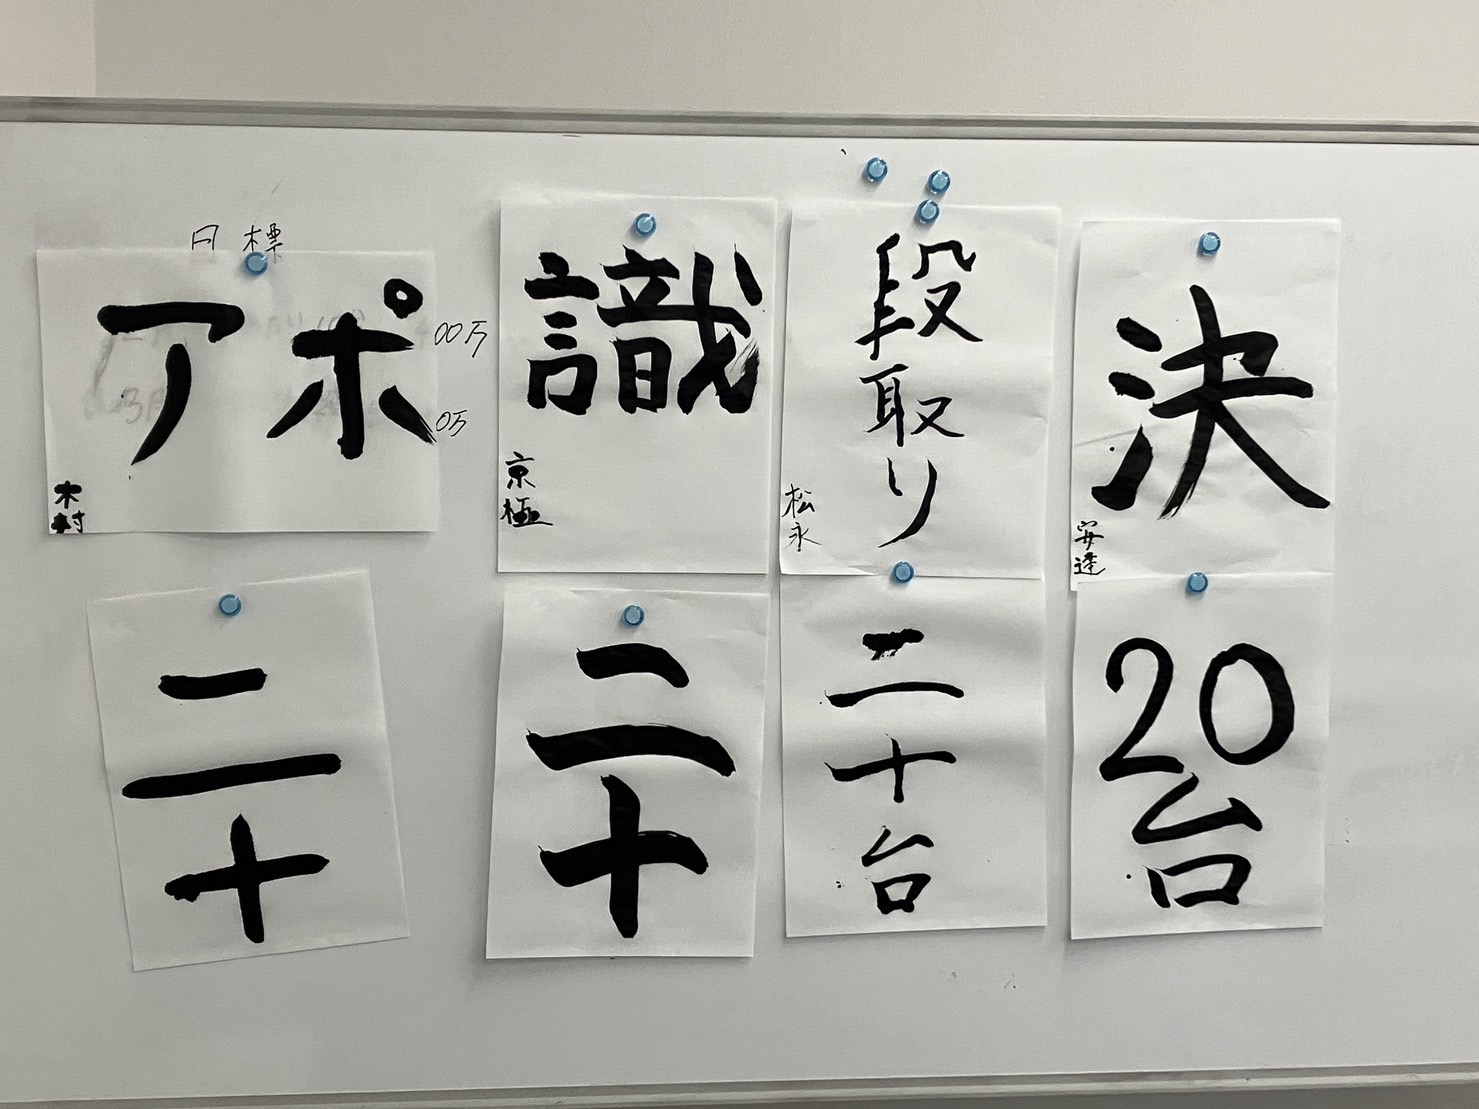 目標
アポ
00万
0万
木村
識
京極
段取り
松永
決
安達
二十
二十
二十台
20台